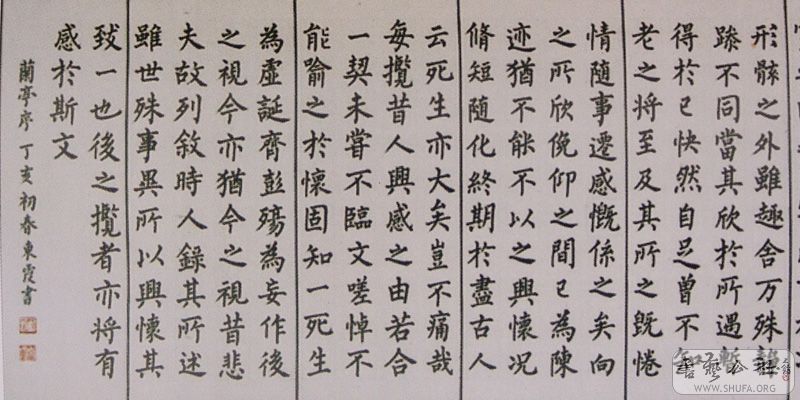 形骸之外雖趣舍万殊靜
躁不同當其欣於所遇暫
得於己快然自足曾不知
老之將至及其所之既惓
情隨事遷感慨係之矣向
之所欣俛仰之間已為陳
迹猶不能不以之興懷况
脩短隨化終期於盡古人
云死生亦大矣豈不痛哉
每攬昔人興感之由若合
一契未嘗不臨文嗟悼不
能喻之於懷固知一死生
為虛誕齊彭殤為妄作後
之視今亦猶今之視昔悲
夫故列敘時人錄其所述
雖世殊事異所以興懷其
致一也後之攬者亦將有
感於斯文
蘭亭序 丁亥初春東霞書
WWW.SHUFA.ORG